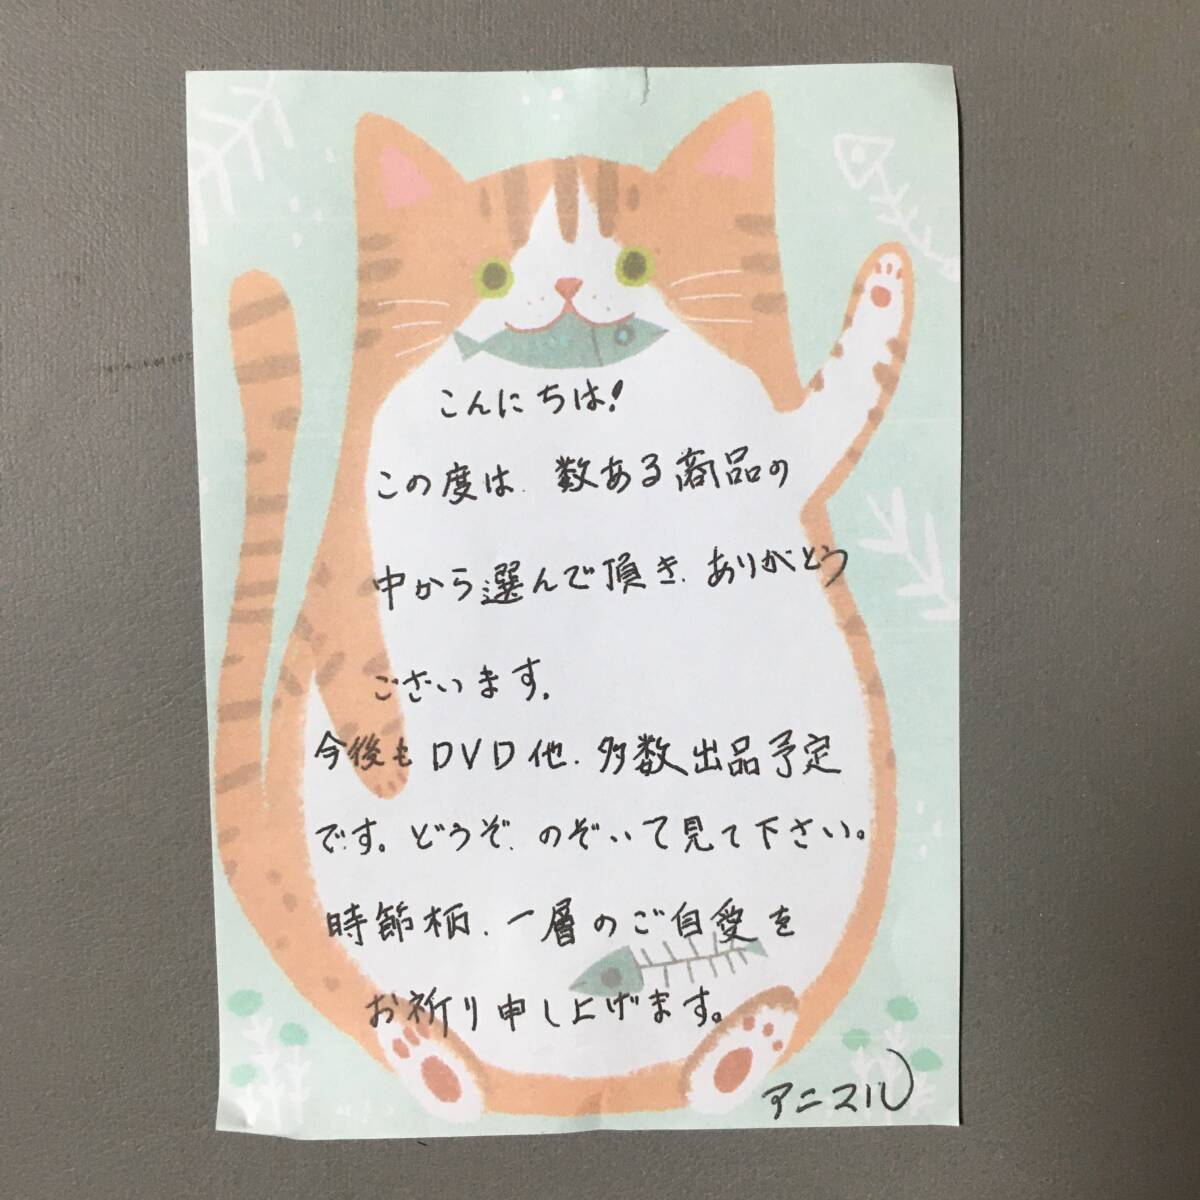 こんにちは!
この度は、数ある商品の
中から選んで頂き、ありがとう
ございます。
今後もDVD他、多数出品予定
です。どうぞ、のぞいて見て下さい。
時節柄、一層のご自愛を
お祈り申し上げます。
アニスル